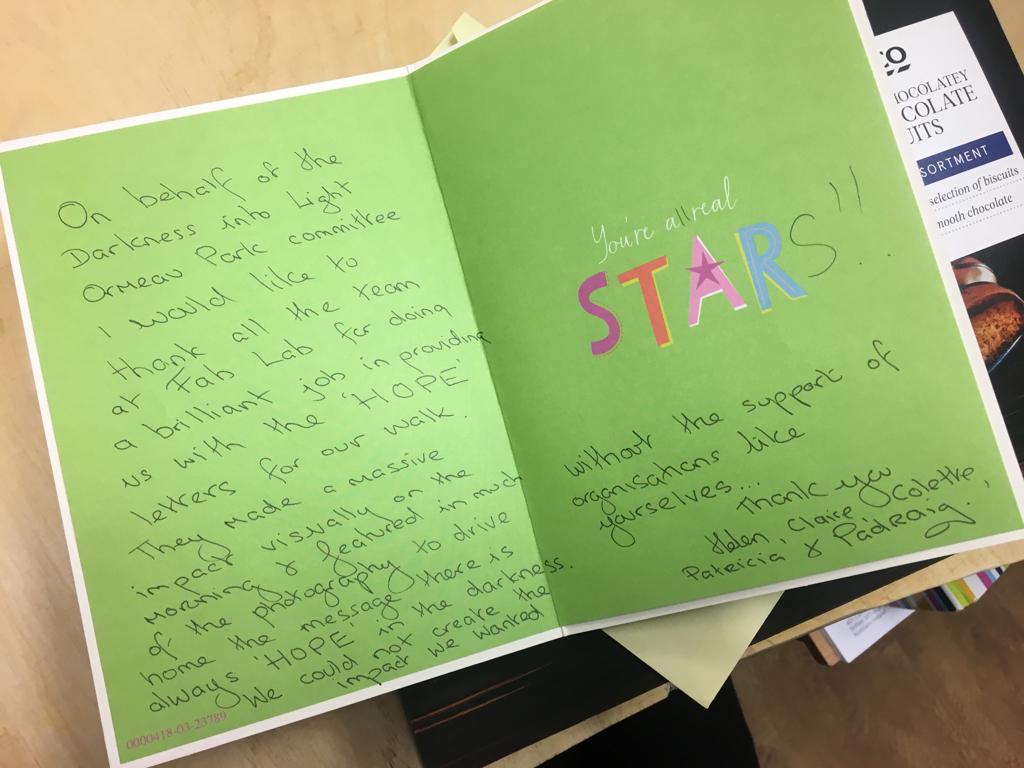 On behalf of the
Darkness into Light
Ormeau Park committee
I would like to
thank all the team
at Fab Lab for doing
a brilliant job in providing
us with the 'HOPE'
letters for our walk.
They made a massive
impact visually on the
morning & featured in much
of the photography to drive
home the message there is
always 'HOPE' in the darkness.
We could not create the
impact we wanted
0000418-03-23789
You're all real
STARS!!
without the support of
organisations like
yourselves...
Thank you
Helen, Claire, Colette,
Patricia & Pádraig.
OCOLATEY
COLATE
UITS
SORTMENT
selection of biscuits
nooth chocolate